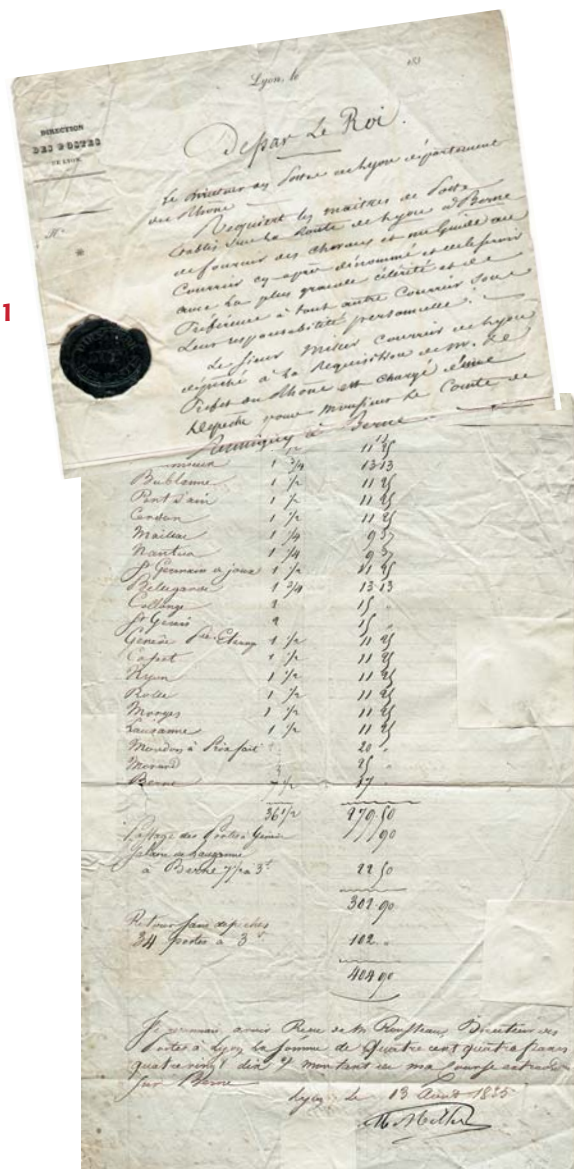 1
Lyon, le 183
DIRECTION
DES POSTES
DE LYON
N°
De par Le Roi.
Le Directeur des Postes de Lyon département
du Rhône
Requiert les maîtres de Poste
établis sur la Route de Lyon à Berne
de fournir des chevaux et un Guide au
Courrier cy après dénommé et de le servir
avec la plus grande célérité et de
Préférence à tout autre Courrier sous
Leur responsabilité personnelle.
Le Sieur Millier Courrier de Lyon
dépêché à la Requisition de M. Le
Préfet du Rhône est chargé d'une
Dépêche pour Monsieur Le Comte de
Rumigny à Berne
1 3/4 13 13
Bublanne 1 1/2 11 25
Pont d'ain 1 1/2 11 25
Cerdon 1 1/2 11 25
Maillac 1 1/4 9 37
Nantua 1 1/4 9 37
St Germain a joux 1 1/2 11 25
Bellegarde 1 3/4 13 13
Collonge 2 15 "
St Genis 2 15 "
Genève 1 1/2 11 25
Copet 1 1/2 11 25
Nyon 1 1/2 11 25
Rolle 1 1/2 11 25
Morges 1 1/2 11 25
Lausanne 1 1/2 11 25
Moudon à 20 "
Morand 25 "
Berne 7 1/2 17 "
36 1/2 279.50
Passage des Portes à Genève 90
de Lausanne
à Berne 7 1/2 à 3f 22 50
302.90
Retour sans dépêches
34 postes à 3 102. "
404 90
Je reconnais avoir Recu de M Directeur des
Postes à Lyon la somme de Quatre cent quatre francs
quatre vingt dix montant de ma Course
sur Berne
Lyon Le 13 Aout 1835